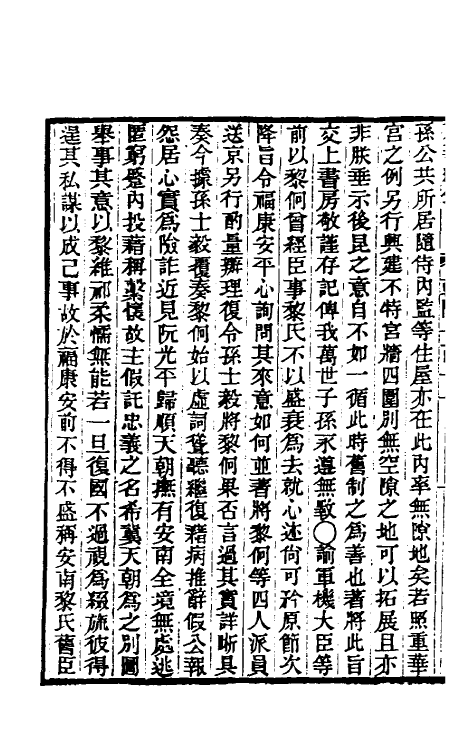 孫公共所居隨侍內監等住屋亦在此內率無隙地矣若照重華
宮之例另行興建不特宮牆四圍別無空隙之地可以拓展且亦
非朕垂示後昆之意自不如一循此時舊制之為善也著將此旨
交上書房敬謹存記俾我萬世子孫永遵無斁○諭軍機大臣等
前以黎侗曾經臣事黎氏不以盛衰為去就心迹尚可矜原節次
降旨令福康安平心詢問其來意如何並著將黎侗等四人派員
送京另行酌量辦理復令孫士毅將黎侗果否言過其實詳晰具
奏今據孫士毅覆奏黎侗始以虛詞聳聽繼復藉病推辭假公報
怨居心實為險詐近見阮光平歸順天朝撫有安南全境無處逃
匿窮蹙內投藉稱槩懷故主假託忠義之名希冀天朝為之別圖
舉事其意以黎維祁柔懦無能若一旦復國不過視為綴旒彼得
逞其私謀以成己事故於福康安前不得不盛稱安南黎氏舊臣